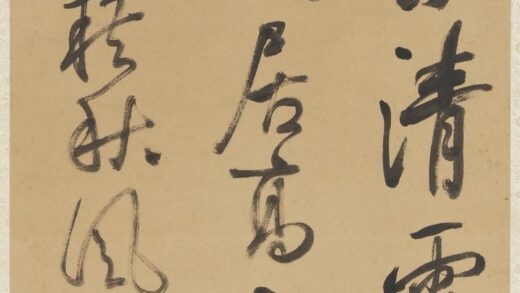 清
居高
藉秋風